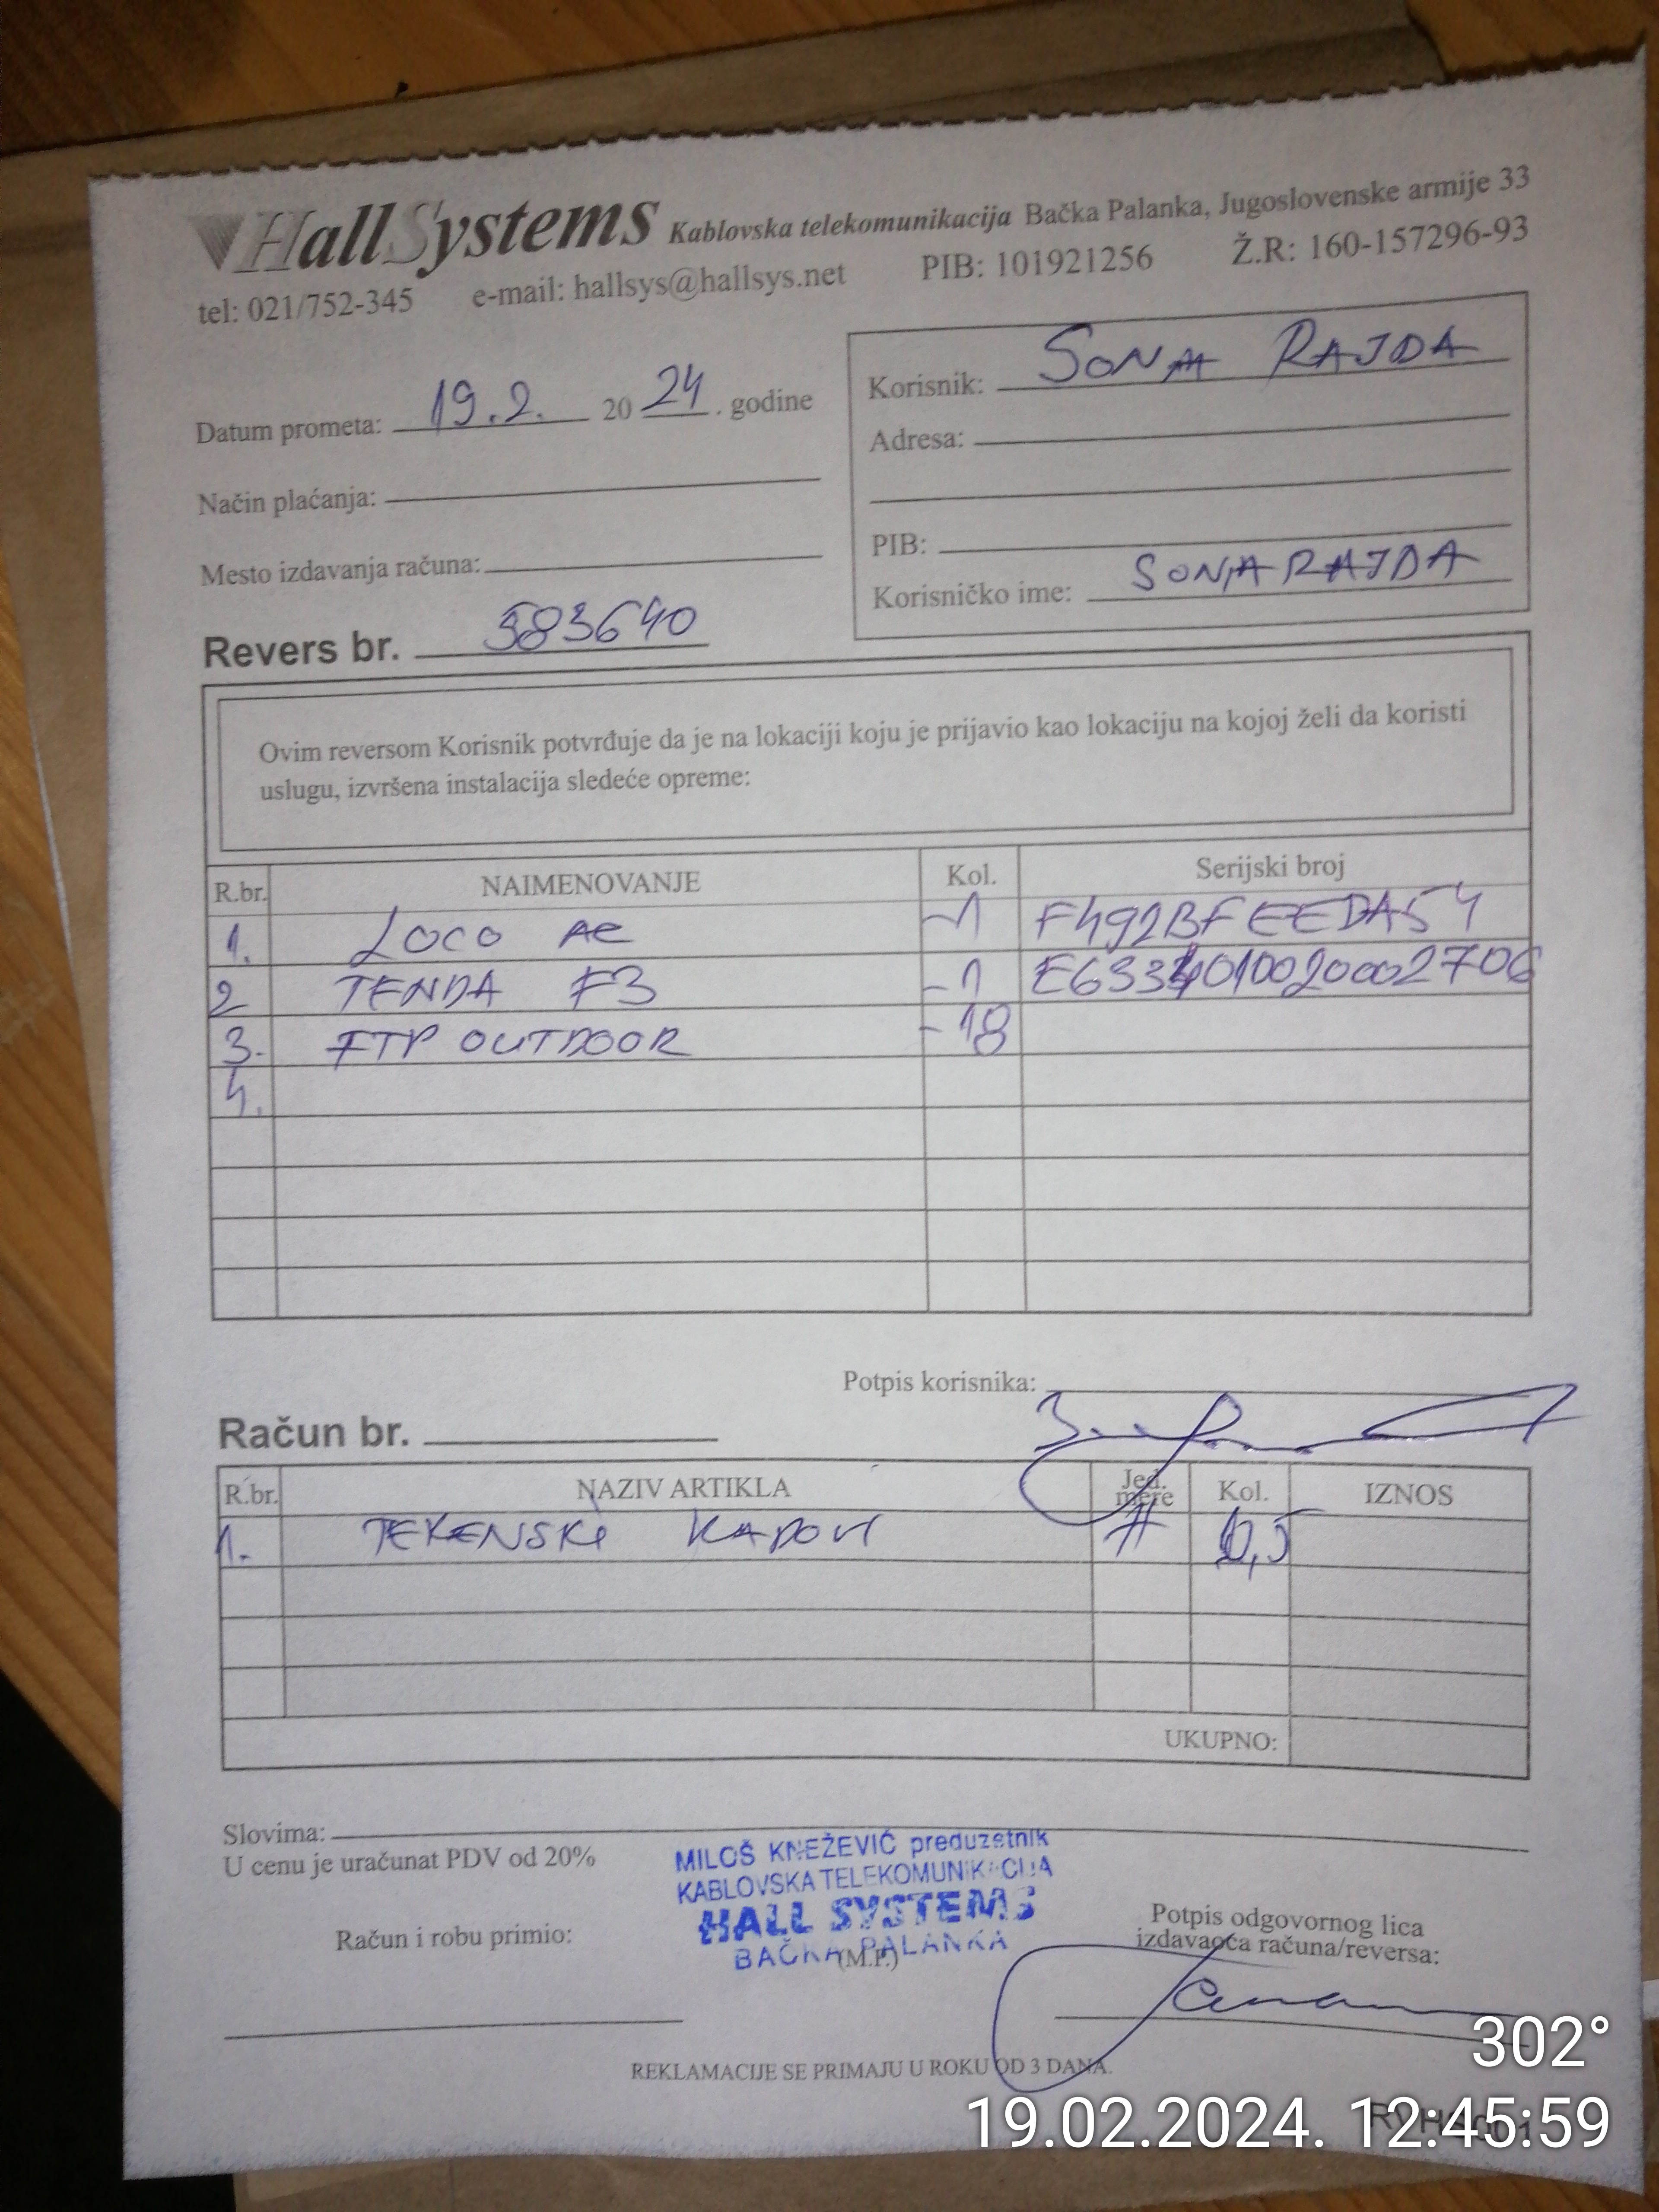 HallSystems Kablovska telekomunikacija Bačka Palanka, Jugoslovenske armije 33
tel: 021/752-345 e-mail: hallsys@hallsys.net PIB: 101921256 Ž.R: 160-157296-93
Datum prometa: 19.2. 20 24 . godine
Način plaćanja:
Mesto izdavanja računa:
Revers br. 583640
Korisnik: SONJA RAJDA
Adresa:
PIB:
Korisničko ime: SONJARAJDA
Ovim reversom Korisnik potvrđuje da je na lokaciji koju je prijavio kao lokaciju na kojoj želi da koristi
uslugu, izvršena instalacija sledeće opreme:
R.br. NAIMENOVANJE Kol. Serijski broj
1. LOCO AC -1 F492BFEEDA54
2 TENDA F3 -1 E6334010020002706
3. FTP OUTDOOR -18
4.
Potpis korisnika:
Račun br.
R.br. NAZIV ARTIKLA Jed. mere Kol. IZNOS
1. H 0,5
UKUPNO:
Slovima:
U cenu je uračunat PDV od 20%
MILOŠ KNEŽEVIĆ preduzetnik
KABLOVSKA TELEKOMUNIKACIJA
HALL SYSTEMS
BAČKA PALANKA
(M.P.)
Račun i robu primio:
Potpis odgovornog lica
izdavaoca računa/reversa:
REKLAMACIJE SE PRIMAJU U ROKU OD 3 DANA.
302°
19.02.2024. 12:45:59